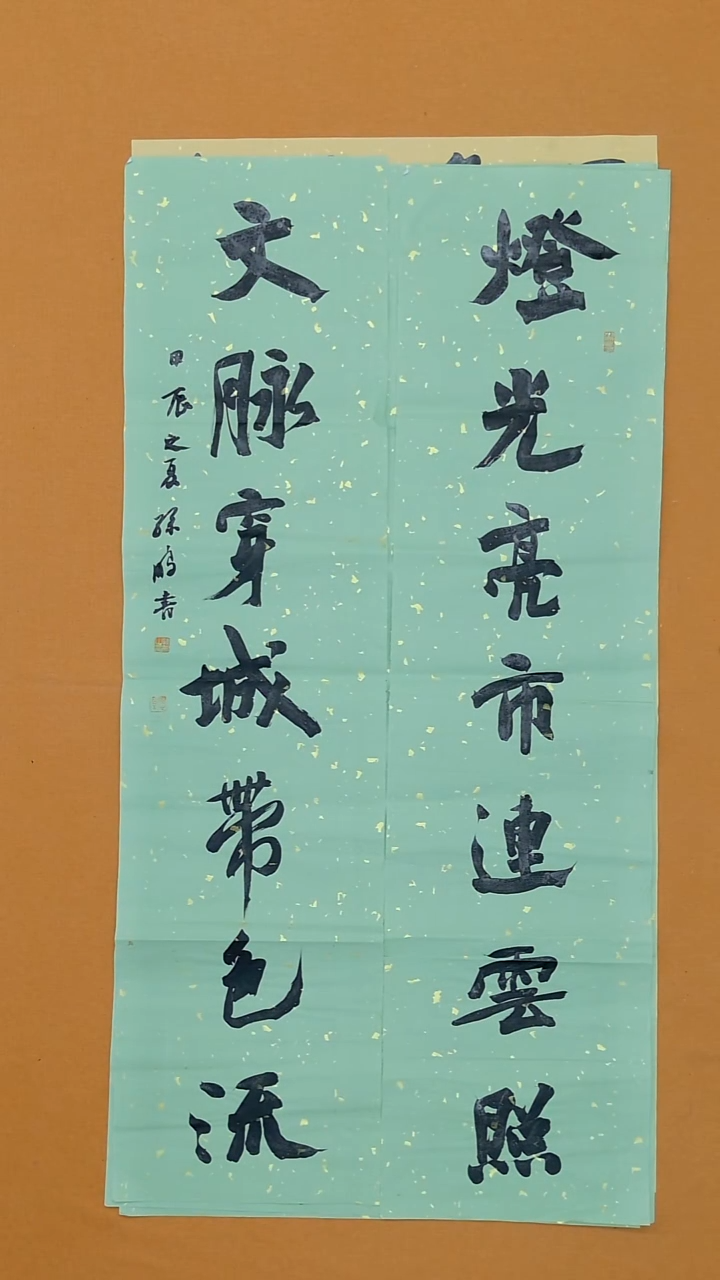 燈光亮市連雲照
文脉穿城帶色流
甲辰之夏孫鵬書